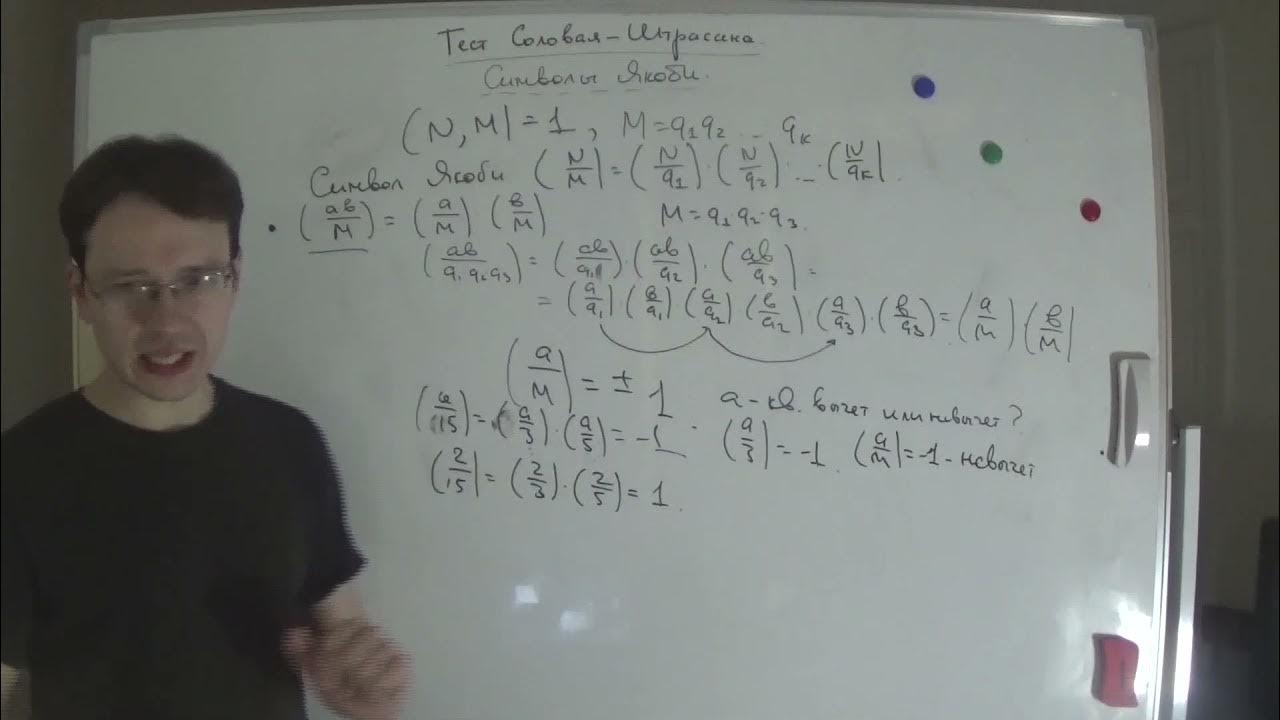 Тест Соловая-Штрассена.
Символы Якоби.
(N, M) = 1, M = q₁q₂ ... qₖ
Символ Якоби (N/M) = (N/q₁)·(N/q₂)·...·(N/qₖ).
• (ab/M) = (a/M) (b/M) M = q₁q₂·q₃.
(ab/q₁q₂q₃) = (ab/q₁)·(ab/q₂)·(ab/q₃) =
= (a/q₁)·(b/q₁)·(a/q₂)(b/q₂)·(a/q₃)·(b/q₃) = (a/M)(b/M)
(a/M) = ± 1
a - кв. вычет или невычет?
(a/15) = (a/3)·(a/5) = -1. (a/3) = -1 (a/M) = -1 - невычет
(2/15) = (2/3)·(2/5) = 1.